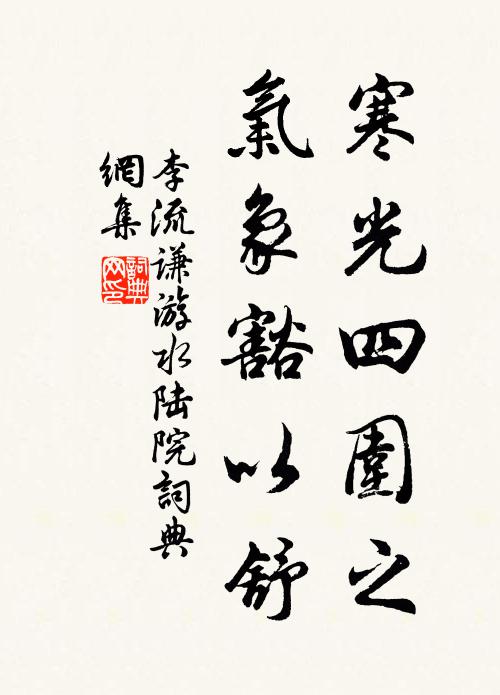 寒光四圍之
氣象豁以舒
李流谦游水陆院詞典
網集
詞典网印